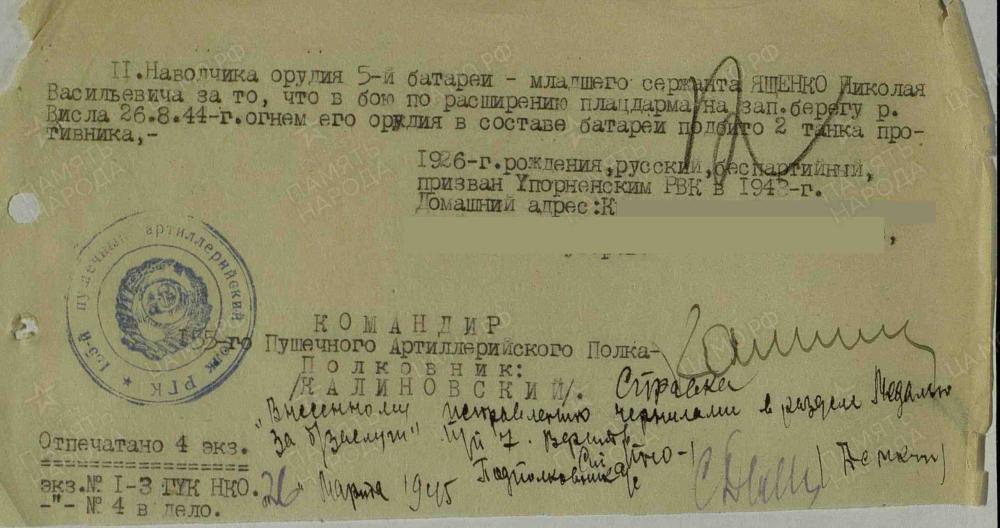 II.Наводчика орудия 5-й батареи - младшего сержанта ЯЩЕНКО Николая
Васильевича за то, что в бою по расширению плацдарма на зап.берегу р.
Висла 26.8.44-г.огнем его орудия в составе батареи подбито 2 танка про-
тивника,-
1926-г.рождения,русский,беспартийный,
призван Упорненским РВК в 1943-г.
Домашний адрес:К
пушечный артиллерийский полк РГК
КОМАНДИР
155-го Пушечного Артиллерийского Полка-
Полковник:
/КАЛИНОВСКИЙ/.
Справка
"Внесенному исправлению чернилами в разделе Медалью
За б/заслуги"
Отпечатано 4 экз.
экз.№ I-3 ГУК НКО.
-"- № 4 в дело.
26 " Марта 1945
Подполковник